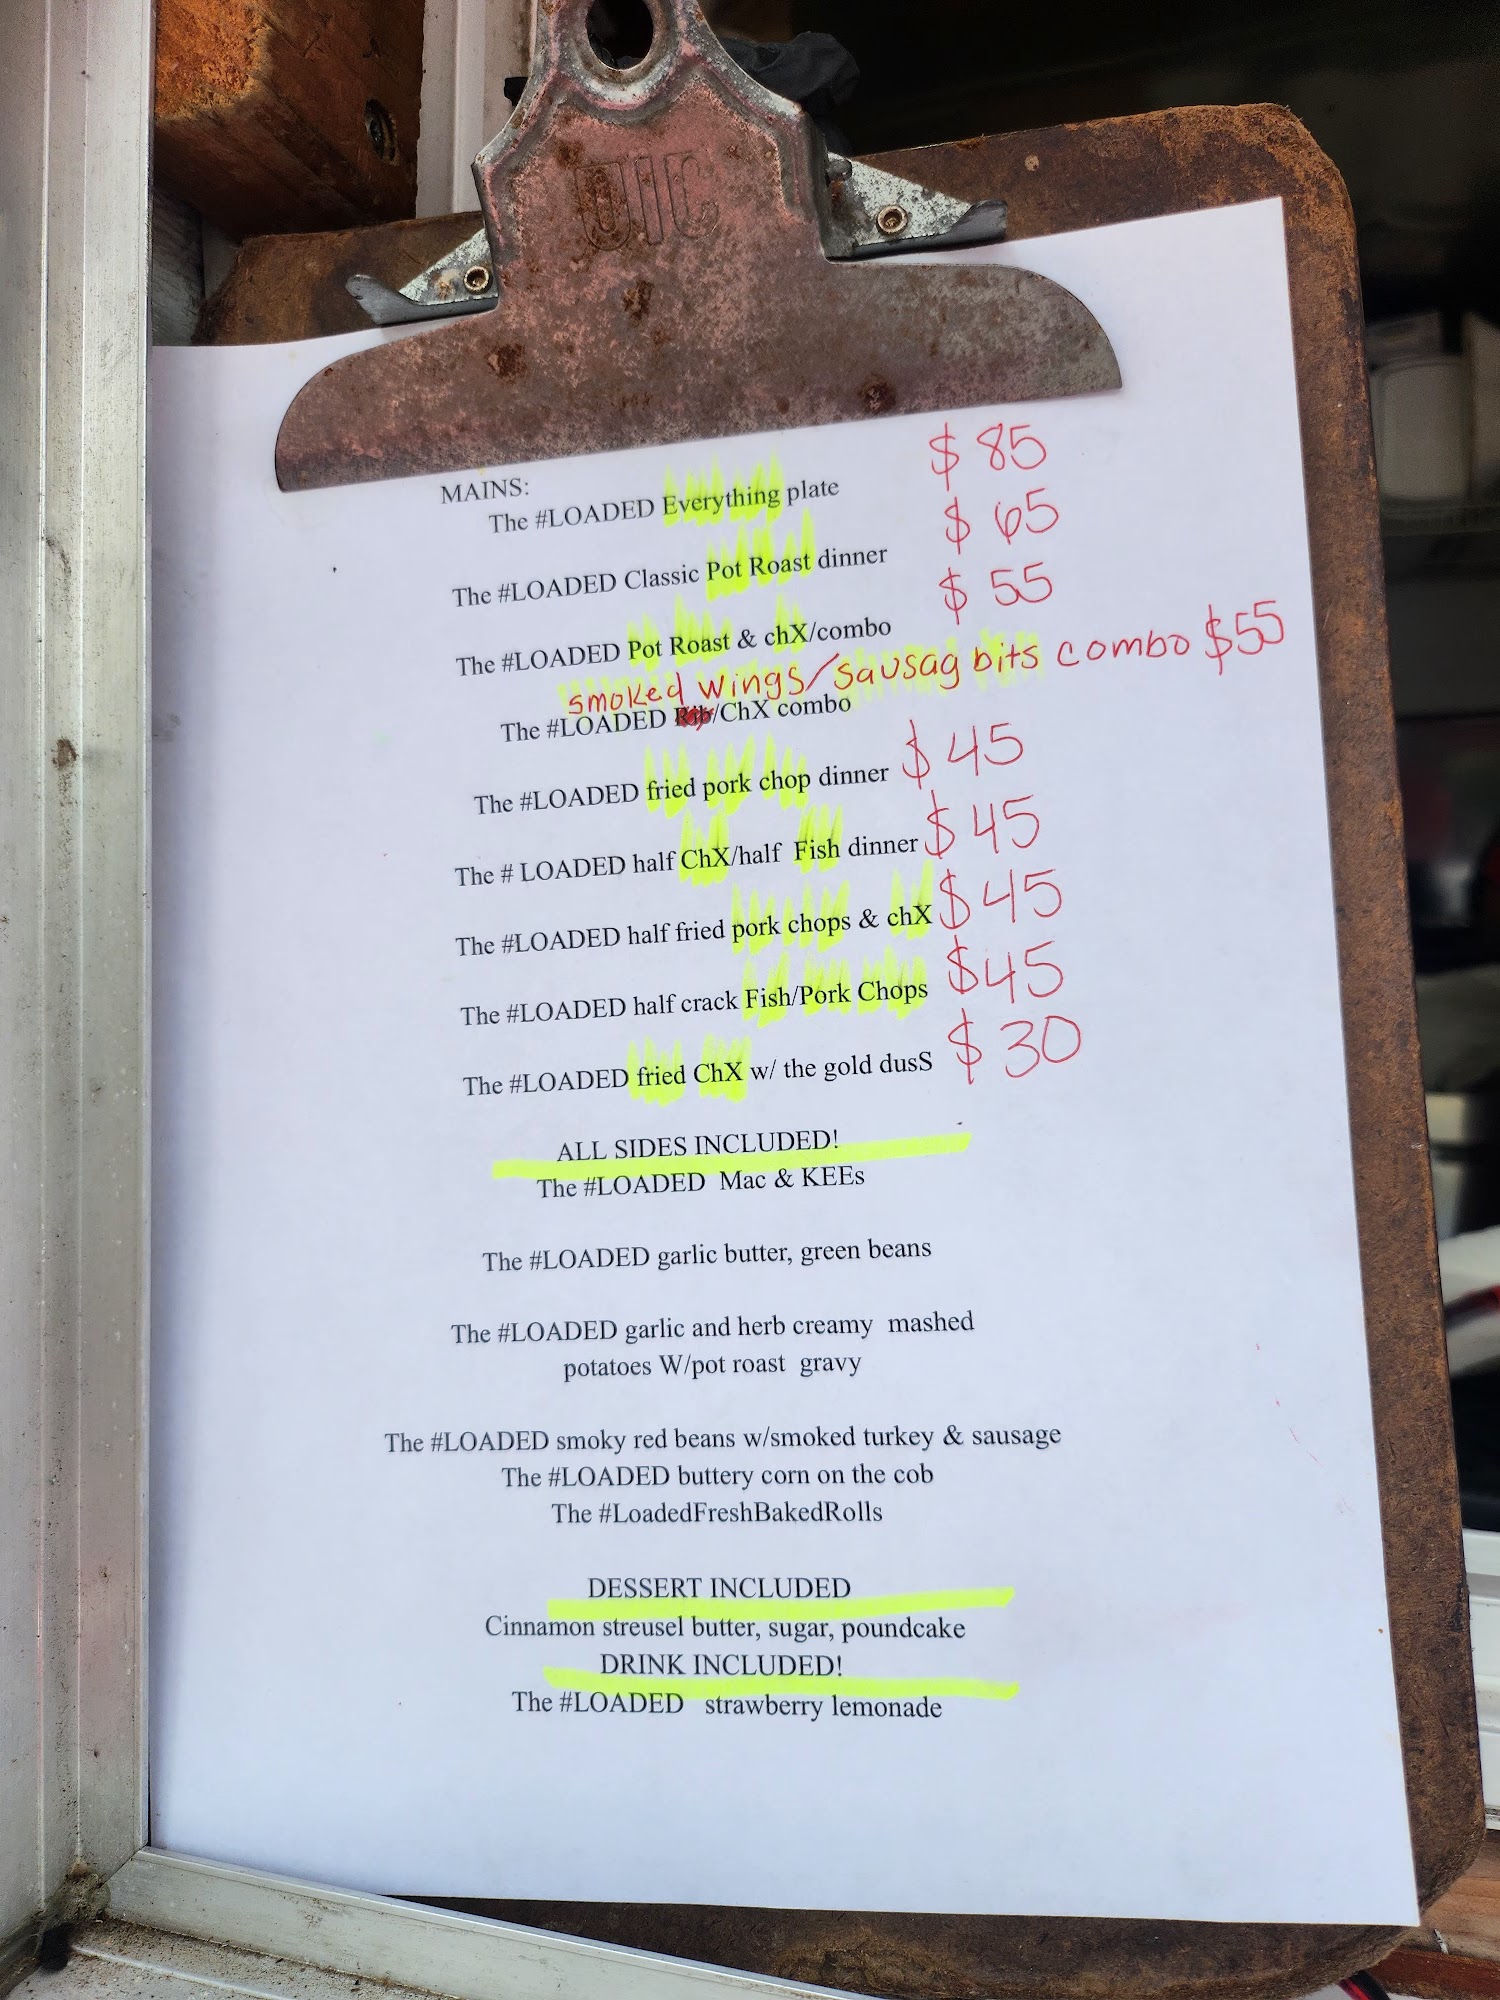 UIC
MAINS:
The #LOADED Everything plate $ 85
The #LOADED Classic Pot Roast dinner $ 65
The #LOADED Pot Roast & chX/combo $ 55
smoked wings/sausag bits combo $55
The #LOADED Rib/ChX combo
The #LOADED fried pork chop dinner $ 45
The # LOADED half ChX/half Fish dinner $ 45
The #LOADED half fried pork chops & chX $ 45
The #LOADED half crack Fish/Pork Chops $45
The #LOADED fried ChX w/ the gold dusS $ 30
ALL SIDES INCLUDED!
The #LOADED Mac & KEEs
The #LOADED garlic butter, green beans
The #LOADED garlic and herb creamy mashed
potatoes W/pot roast gravy
The #LOADED smoky red beans w/smoked turkey & sausage
The #LOADED buttery corn on the cob
The #LoadedFreshBakedRolls
DESSERT INCLUDED
Cinnamon streusel butter, sugar, poundcake
DRINK INCLUDED!
The #LOADED strawberry lemonade